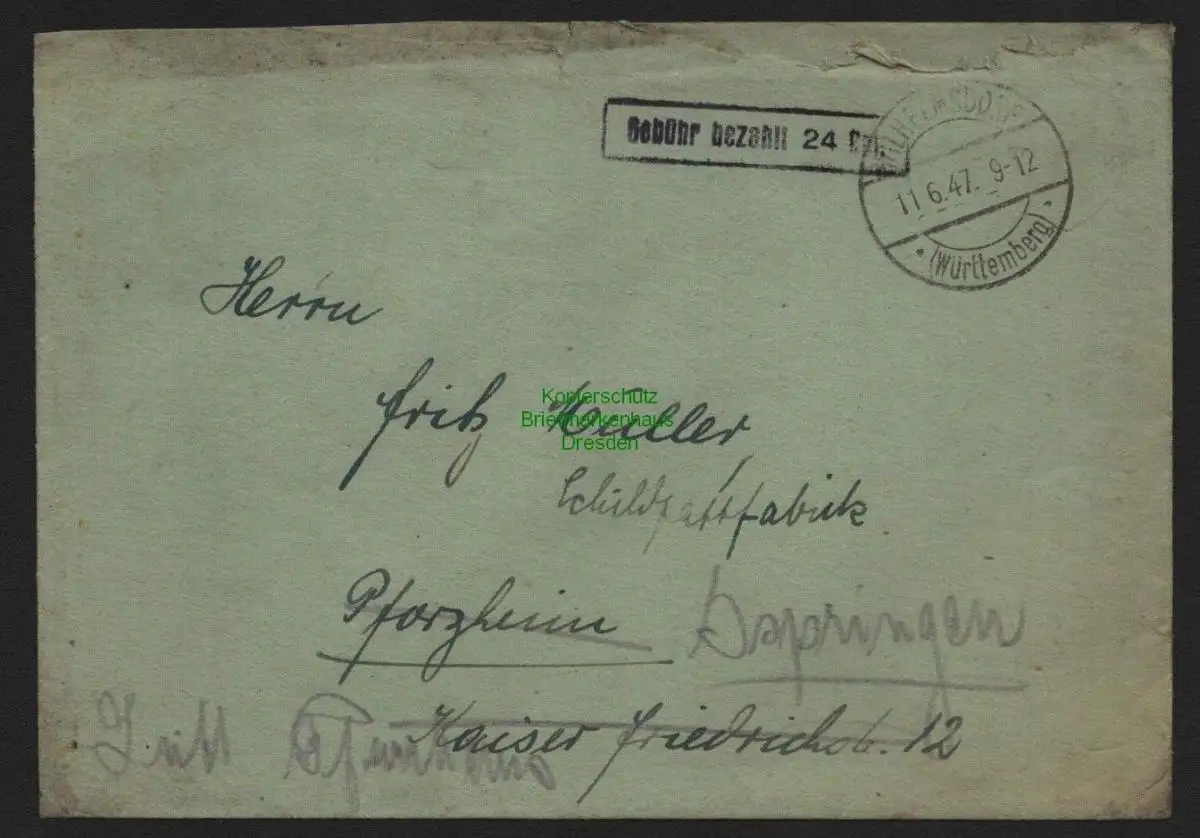 Gebühr bezahlt 24 Rpf.
WILHELMSDORF
11.6.47. 9-12
(Württemberg)
Herrn
Fritz Müller
Kopierschutz
Briefmarkenhaus
Dresden
Schildpattfabrik
Pforzheim Ispringen
Kaiser Friedrichstr. 12